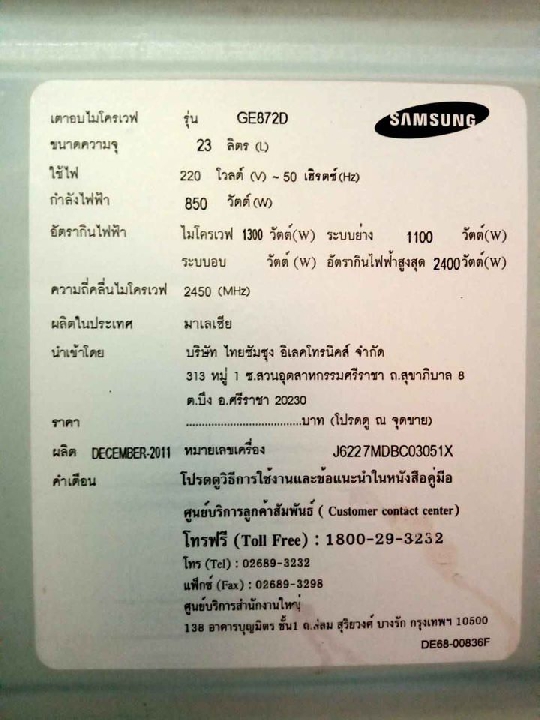 เตาอบไมโครเวฟ รุ่น GE872D
SAMSUNG
ขนาดความจุ 23 ลิตร (L)
ใช้ไฟ 220 โวลต์ (V) ~ 50 เฮิรตซ์(Hz)
กำลังไฟฟ้า 850 วัตต์ (W)
อัตรากินไฟฟ้า ไมโครเวฟ 1300 วัตต์(W) ระบบย่าง 1100 วัตต์(W)
ระบบอบ วัตต์ (W) อัตรากินไฟฟ้าสูงสุด 2400วัตต์(W)
ความถี่คลื่นไมโครเวฟ 2450 (MHz)
ผลิตในประเทศ มาเลเซีย
นำเข้าโดย บริษัท ไทยซัมซุง อิเลคโทรนิคส์ จำกัด
313 หมู่ 1 ซ.สวนอุตสาหกรรมศรีราชา ถ.สุขาภิบาล 8
ต.บึง อ.ศรีราชา 20230
ราคา ..................................บาท (โปรดดู ณ จุดขาย)
ผลิต DECEMBER-2011 หมายเลขเครื่อง J6227MDBC03051X
คำเตือน โปรดดูวิธีการใช้งานและข้อแนะนำในหนังสือคู่มือ
ศูนย์บริการลูกค้าสัมพันธ์ ( Customer contact center)
โทรฟรี (Toll Free) : 1800-29-3232
โทร (Tel) : 02689-3232
แฟ็กซ์ (Fax) : 02689-3298
ศูนย์บริการสำนักงานใหญ่
138 อาคารบุญมิตร ชั้น1 ถ.สีลม สุริยวงศ์ บางรัก กรุงเทพฯ 10500
DE68-00836F